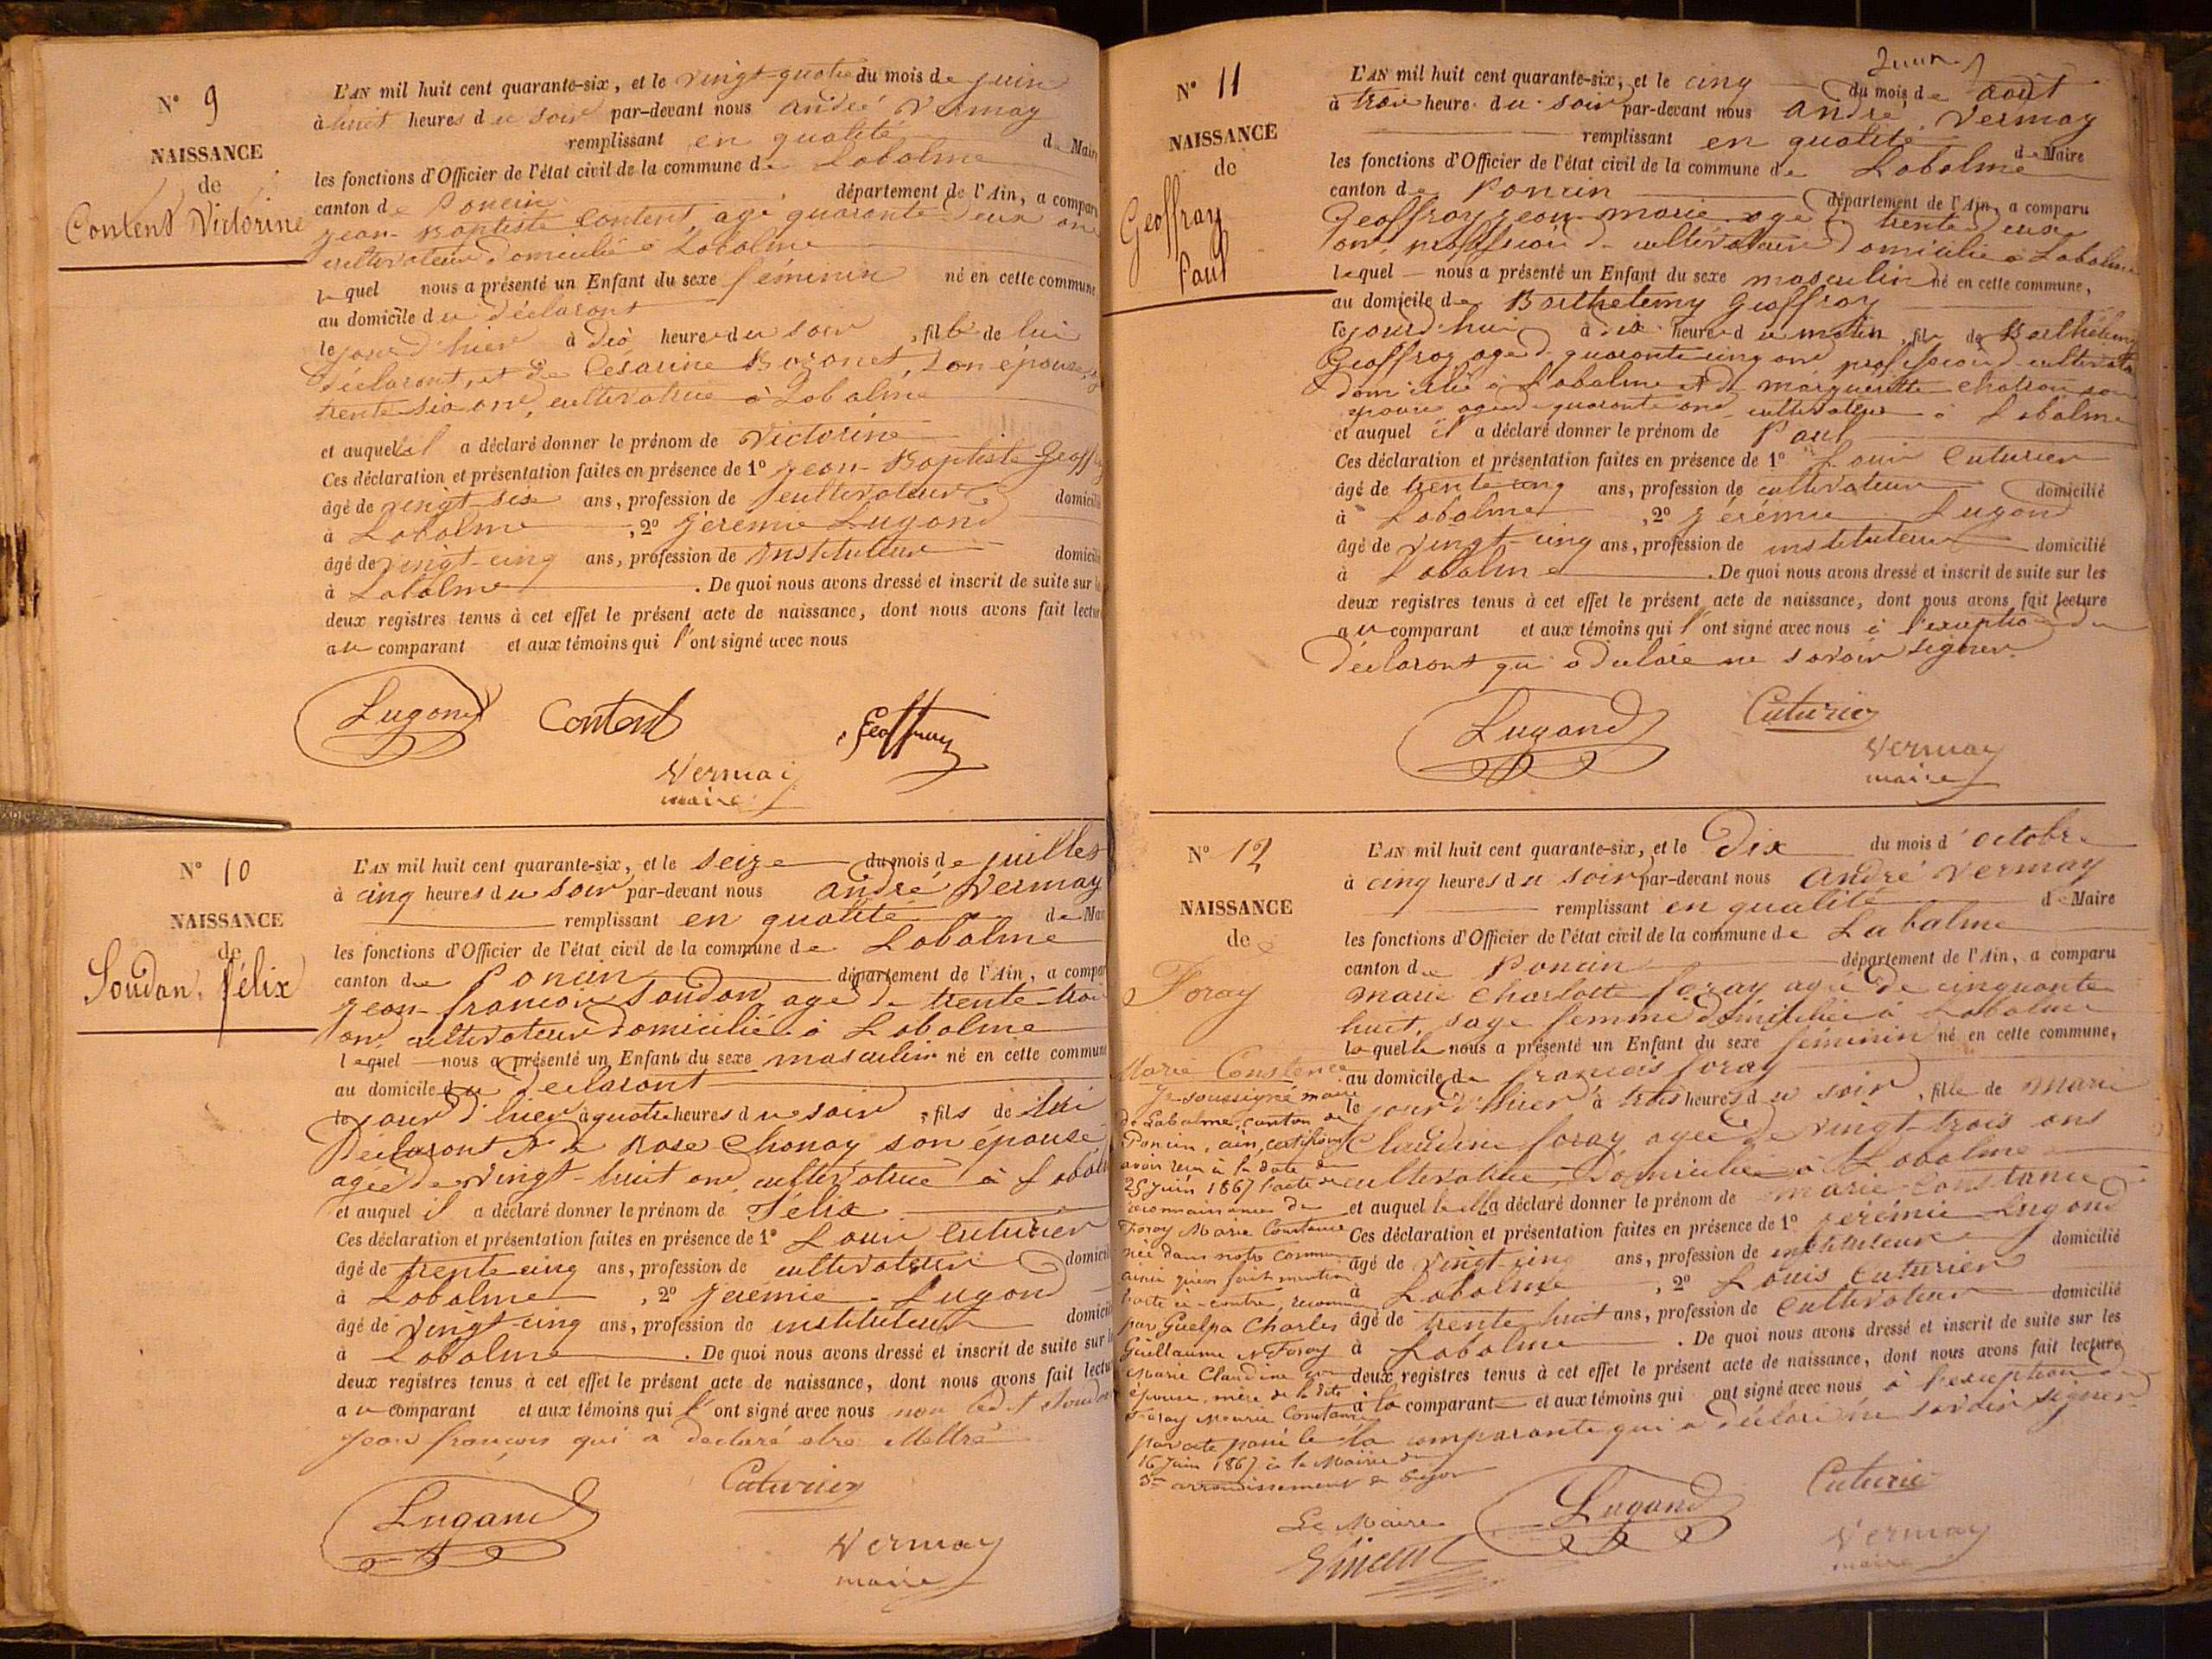 N° 9
NAISSANCE
de
Content Victorine
L'AN mil huit cent quarante-six, et le vingt-quatre du mois de juin
à huit heures du soir par-devant nous andré Vermay
remplissant en qualité de Maire
les fonctions d'Officier de l'état civil de la commune de Labalme
canton de Poncin département de l'Ain, a compar
jean-Baptiste Content, agé quarante-deux ans
cultivateur domicilié à Labalme
lequel nous a présenté un Enfant du sexe féminin né en cette commune
au domicile du déclarant
le jour d'hier à dix heures du soir, fille de lui
déclarant, et de Césarine Bozonet, son épouse,
trente six ans, cultivatrice à Labalme
et auquel il a déclaré donner le prénom de Victorine
Ces déclaration et présentation faites en présence de 1° jean-Baptiste Geoffray
âgé de vingt-six ans, profession de cultivateur domicilié
à Labalme, 2° jeremie Lugand
âgé de vingt-cinq ans, profession de instituteur domicilié
à Labalme. De quoi nous avons dressé et inscrit de suite sur
deux registres tenus à cet effet le présent acte de naissance, dont nous avons fait lectur
au comparant et aux témoins qui l'ont signé avec nous
Lugand Content Geoffray
Vermay
maire
N° 10
NAISSANCE
de
Soudan, félix
L'AN mil huit cent quarante-six, et le seize du mois de juillet
à cinq heures du soir par-devant nous andré Vermay
remplissant en qualité de Mai
les fonctions d'Officier de l'état civil de la commune de Labalme
canton de Poncin département de l'Ain, a compar
jean-francois Soudan, agé de trente-trois
ans cultivateur domicilié à Labalme
lequel nous a présenté un Enfant du sexe masculin né en cette commune
au domicile du declarant
le jour d'hier à quatre heures du soir, fils de lui
Déclarant et de Rose Chanay son épouse
agée de vingt-huit ans cultivatrice à Labal
et auquel il a déclaré donner le prénom de Félix
Ces déclaration et présentation faites en présence de 1° Louis Cuturier
âgé de trente cinq ans, profession de cultivateur domicil
à Labalme, 2° jeremie Lugand
âgé de vingt-cinq ans, profession de instituteur domicil
à Labalme. De quoi nous avons dressé et inscrit de suite sur
deux registres tenus à cet effet le présent acte de naissance, dont nous avons fait lectu
au comparant et aux témoins qui l'ont signé avec nous non ledit Soudan
jean françois qui a declaré etre illettré
Lugand Cuturier
Vermay
maire
N° 11
NAISSANCE
de
Geoffray
Paul
L'AN mil huit cent quarante-six, et le cinq du mois de août
à trois heure du soir par-devant nous andré Vermay
remplissant en qualité de Maire
les fonctions d'Officier de l'état civil de la commune de Labalme
canton de Poncin département de l'Ain, a comparu
Geoffray jean-marie agé de trente deux
ans, profession de cultivateur domicilié à Labalme
lequel nous a présenté un Enfant du sexe masculin né en cette commune,
au domicile de Barthelemy Geoffray
le jourd'hui à dix heures du matin, fils de Barthélemy
Geoffray, agé de quarante cinq ans profession de cultivateur
domicilié à Labalme et de margueritte
épouse agée de quarante ans cultivatrice à Labalme
et auquel il a déclaré donner le prénom de Paul
Ces déclaration et présentation faites en présence de 1° Louis Cuturier
âgé de trente cinq ans, profession de cultivateur domicilié
à Labalme, 2° jérémie Lugand
âgé de vingt-cinq ans, profession de instituteur domicilié
à Labalme. De quoi nous avons dressé et inscrit de suite sur les
deux registres tenus à cet effet le présent acte de naissance, dont nous avons fait lecture
au comparant et aux témoins qui l'ont signé avec nous à l'exception du
déclarant qui a déclaré ne savoir signer.
Lugand Cuturier
Vermay
maire
N° 12
NAISSANCE
de
Foray
Marie Constance
L'AN mil huit cent quarante-six, et le Dix du mois d'octobre
à cinq heures du soir par-devant nous André Vermay
remplissant en qualité de Maire
les fonctions d'Officier de l'état civil de la commune de Labalme
canton de Poncin département de l'Ain, a comparu
marie Charlotte foray agée de cinquante
huit, sage femme domiciliée à Labalme
laquelle nous a présenté un Enfant du sexe féminin né en cette commune,
au domicile de francois foray
le jour d'hier à trois heures du soir, fille de marie
Claudine foray agée de vingt-trois ans
cultivatrice, domiciliée à Labalme
et auquel elle a déclaré donner le prénom de marie Constance
Ces déclaration et présentation faites en présence de 1° jérémie Lugand
âgé de vingt-cinq ans, profession de instituteur domicilié
à Labalme, 2° Louis Cuturier
âgé de trente huit ans, profession de cultivateur domicilié
à Labalme. De quoi nous avons dressé et inscrit de suite sur les
deux registres tenus à cet effet le présent acte de naissance, dont nous avons fait lecture
à la comparante et aux témoins qui ont signé avec nous à l'exception de
la comparante qui a déclaré ne savoir signer.
Je soussigné maire
de Labalme, canton de
Poncin, ain, certifions
avoir reçu à la date du
25 juin 1867 l'acte de
reconnaissance de
Foray Marie Constance
née dans notre commune
ainsi qu'en fait mention
l'acte ci-contre, reconnue
par Guelpa Charles
Guillaume et Foray
Marie Claudine son
épouse, mère de la dite
Foray Marie Constance
par acte passé le
16 Juin 1867 à la Mairie du
3me arrondissement de Lyon
Le Maire
Lugand Cuturier
Vermay
maire